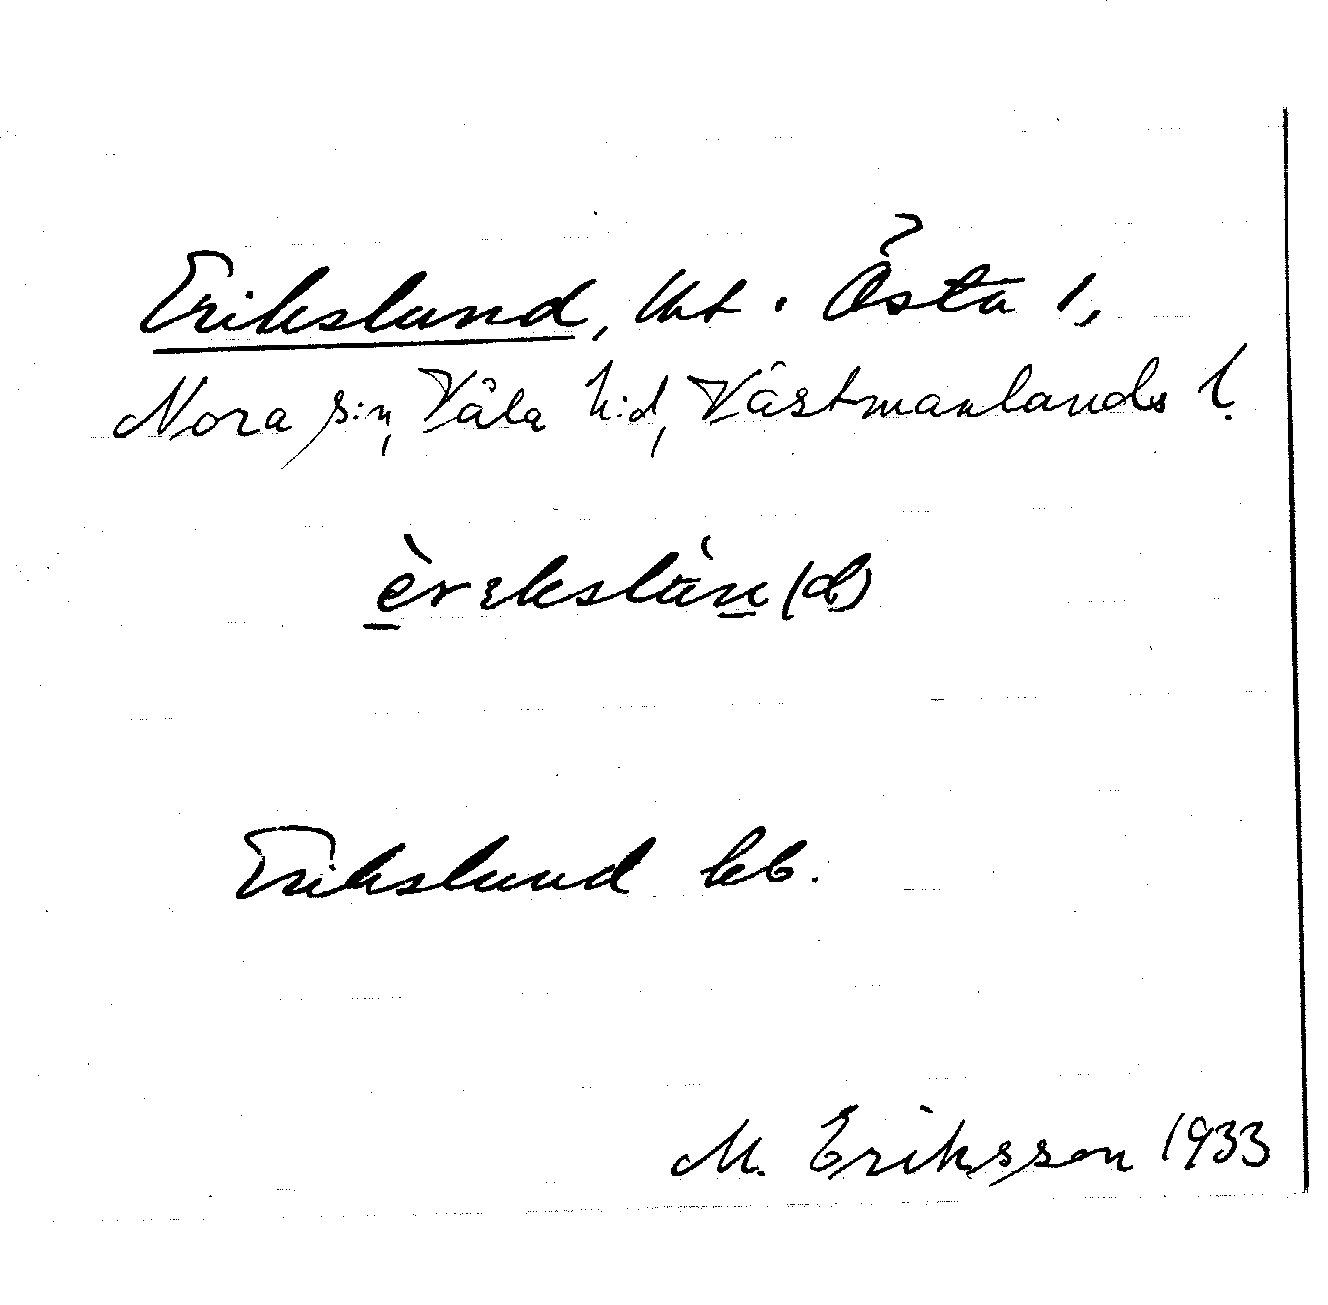 Erikslund, lht. Östa 1,
Nora s:n, Våla h:d, Västmanlands l.
èrikslùn(d)
Erikslund kb.
M. Eriksson 1933